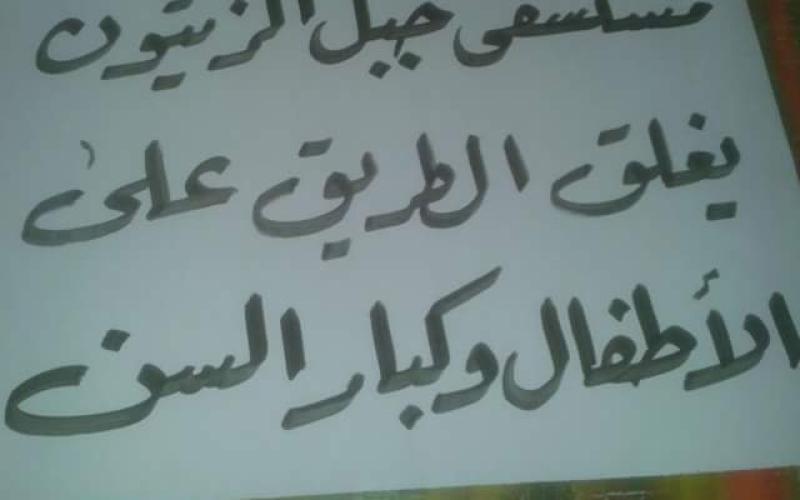 مستشفى جبل الزيتون
يغلق الطريق على
الأطفال وكبار السن